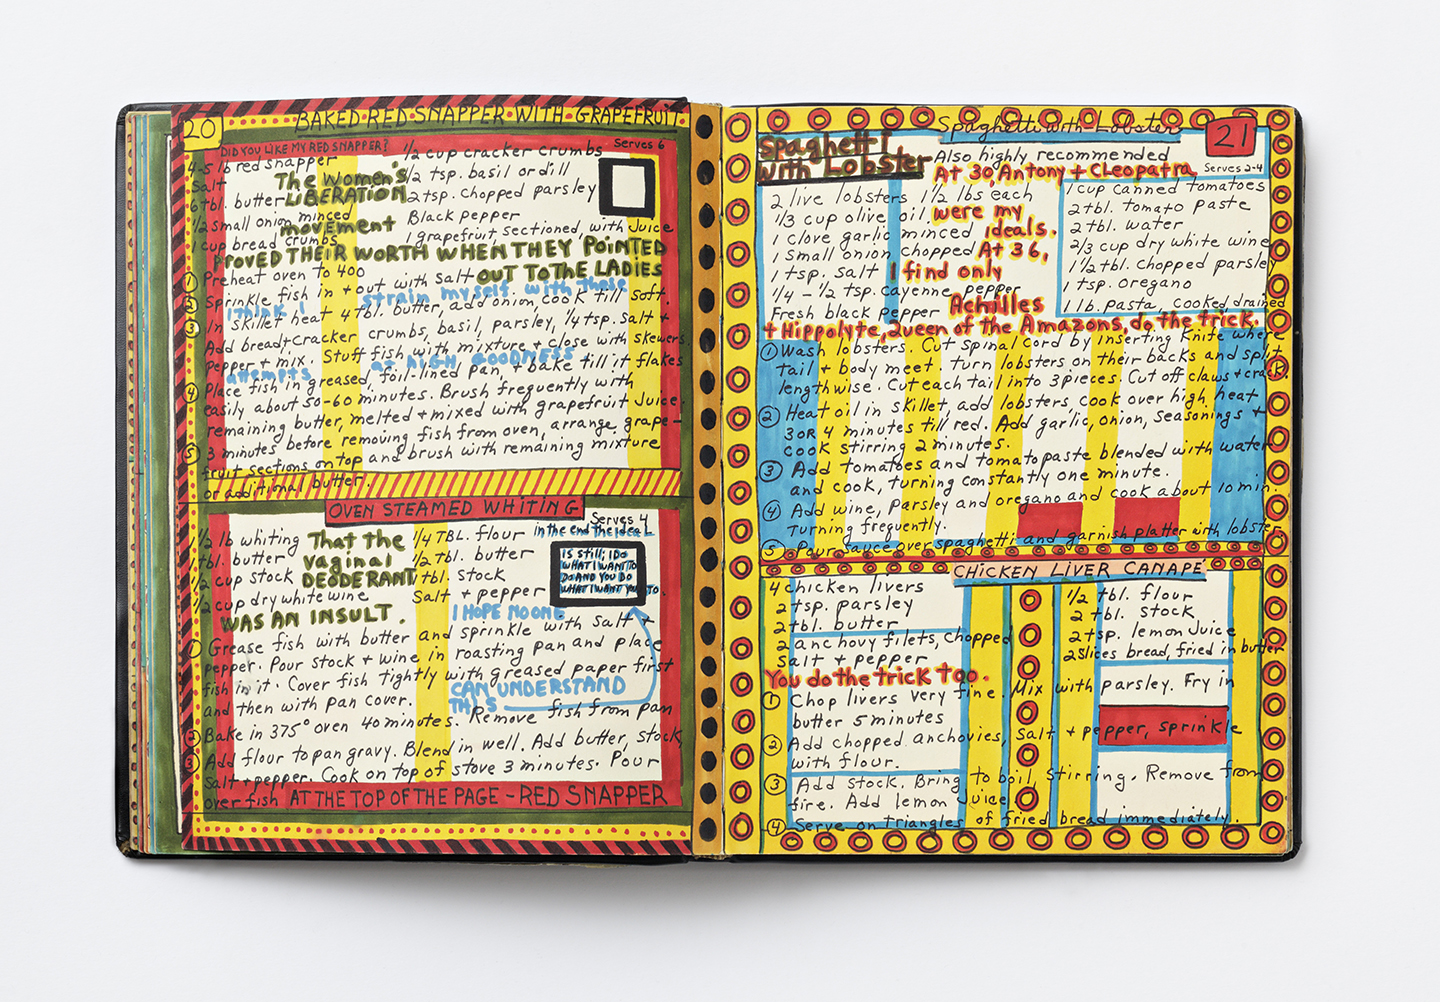 20
BAKED RED SNAPPER WITH GRAPEFRUIT
DID YOU LIKE MY RED SNAPPER?
Serves 6
4-5 lb red snapper
Salt
6 tbl. butter
1/2 small onion minced
1 cup bread crumbs
1/2 cup cracker crumbs
1/2 tsp. basil or dill
2 tsp. chopped parsley
Black pepper
1 grapefruit sectioned, with Juice
The Women's
LIBERATION
movement
PROVED THEIR WORTH WHEN THEY POINTED
OUT TO THE LADIES
① Preheat oven to 400
② Sprinkle fish in + out with Salt
③ In skillet heat 4 tbl. butter, add onion, cook till soft.
Add bread + cracker crumbs, basil, parsley, 1/4 tsp. Salt +
pepper + mix. Stuff fish with mixture + close with skewers.
④ Place fish in greased, foil-lined pan, + bake till it flakes
easily about 50-60 minutes. Brush frequently with
remaining butter, melted + mixed with grapefruit Juice.
⑤ 3 minutes before removing fish from oven, arrange grape-
fruit sections on top and brush with remaining mixture
or additional butter.
I think I strain myself with these
attempts at HIGH GOODNESS
OVEN STEAMED WHITING
Serves 4
1/2 lb whiting
tbl. butter
1/2 cup stock
1/2 cup dry white wine
1/4 TBL. flour
1/2 tbl. butter
tbl. stock
Salt + pepper
That the
vaginal
DEODERANT
WAS AN INSULT.
in the end the ideal
IS STILL; I DO
WHAT I WANT TO
DO AND YOU DO
WHAT I WANT YOU TO.
I HOPE NO ONE
CAN UNDERSTAND
THIS
① Grease fish with butter and sprinkle with Salt +
pepper. Pour stock + wine in roasting pan and place
fish in it. Cover fish tightly with greased paper first
and then with pan cover.
② Bake in 375° oven 40 minutes. Remove fish from pan
③ Add flour to pan gravy. Blend in well. Add butter, stock,
Salt + pepper. Cook on top of stove 3 minutes. Pour
over fish
AT THE TOP OF THE PAGE - RED SNAPPER
Spaghetti with Lobster
21
Spaghetti
with Lobster
Also highly recommended
Serves 2-4
2 live lobsters 1 1/2 lbs each
1/3 cup olive oil
1 clove garlic minced
1 small onion chopped
1 tsp. salt
1/4 - 1/2 tsp. cayenne pepper
Fresh black pepper
1 cup canned tomatoes
2 tbl. tomato paste
2 tbl. water
2/3 cup dry white wine
1 1/2 tbl. chopped parsley
1 tsp. oregano
1 lb. pasta, cooked, drained
At 30, Antony + Cleopatra
were my
ideals.
At 36,
I find only
Achilles
+ Hippolyte, Queen of the Amazons, do the trick.
① Wash lobsters. Cut spinal cord by inserting Knife where
tail + body meet. Turn lobsters on their backs and split
lengthwise. Cut each tail into 3 pieces. Cut off claws + crack.
② Heat oil in skillet, add lobsters cook over high heat
3 OR 4 minutes till red. Add garlic, onion, seasonings +
cook stirring 2 minutes.
③ Add tomatoes and tomato paste blended with water
and cook, turning constantly one minute.
④ Add wine, parsley and oregano and cook about 10 min.
Turning frequently.
⑤ Pour sauce over spaghetti and garnish platter with lobster
CHICKEN LIVER CANAPE
4 chicken livers
2 tsp. parsley
2 tbl. butter
2 anchovy filets, Chopped
Salt + pepper
1/2 tbl. flour
2 tbl. stock
2 tsp. lemon Juice
2 slices bread, fried in butter
You do the trick too.
① Chop livers very fine. Mix with parsley. Fry in
butter 5 minutes
② Add chopped anchovies, Salt + pepper, sprinkle
with flour.
③ Add stock. Bring to boil, stirring. Remove from
fire. Add lemon Juice.
④ Serve on triangles of fried bread immediately.